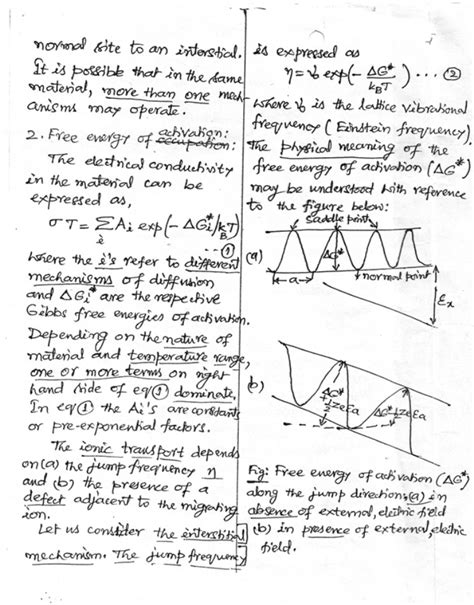 normal site to an interstitial.
It is possible that in the same
material, more than one mech-
anisms may operate.
2. Free energy of activation:
occupation:
The electrical conductivity
in the material can be
expressed as,
σT = Σ Ai exp(-ΔGi*/kBT)
i
... ①
where the i's refer to different
mechanisms of diffusion
and ΔGi* are the respective
Gibbs free energies of activation.
Depending on the nature of
material and temperature range,
one or more terms on right-
hand side of eq ① dominate.
In eq ① the Ai's are constants
or pre-exponential factors.
The ionic transport depends
on (a) the jump frequency η
and (b) the presence of a
defect adjacent to the migrating
ion.
Let us consider the interstitial
mechanism. The jump frequency
is expressed as
η = ν₀ exp(-ΔG*/kBT) ... ②
where ν₀ is the lattice vibrational
frequency (Einstein frequency).
The physical meaning of the
free energy of activation (ΔG*)
may be understood with reference
to the figure below:
saddle point
(a)
ΔG*
a
normal point
Ex
(b)
ΔG*
+½zeεa
ΔG*-½zeεa
Fig: Free energy of activation (ΔG*)
along the jump directions (a) in
absence of external, electric field
(b) in presence of external, electric
field.